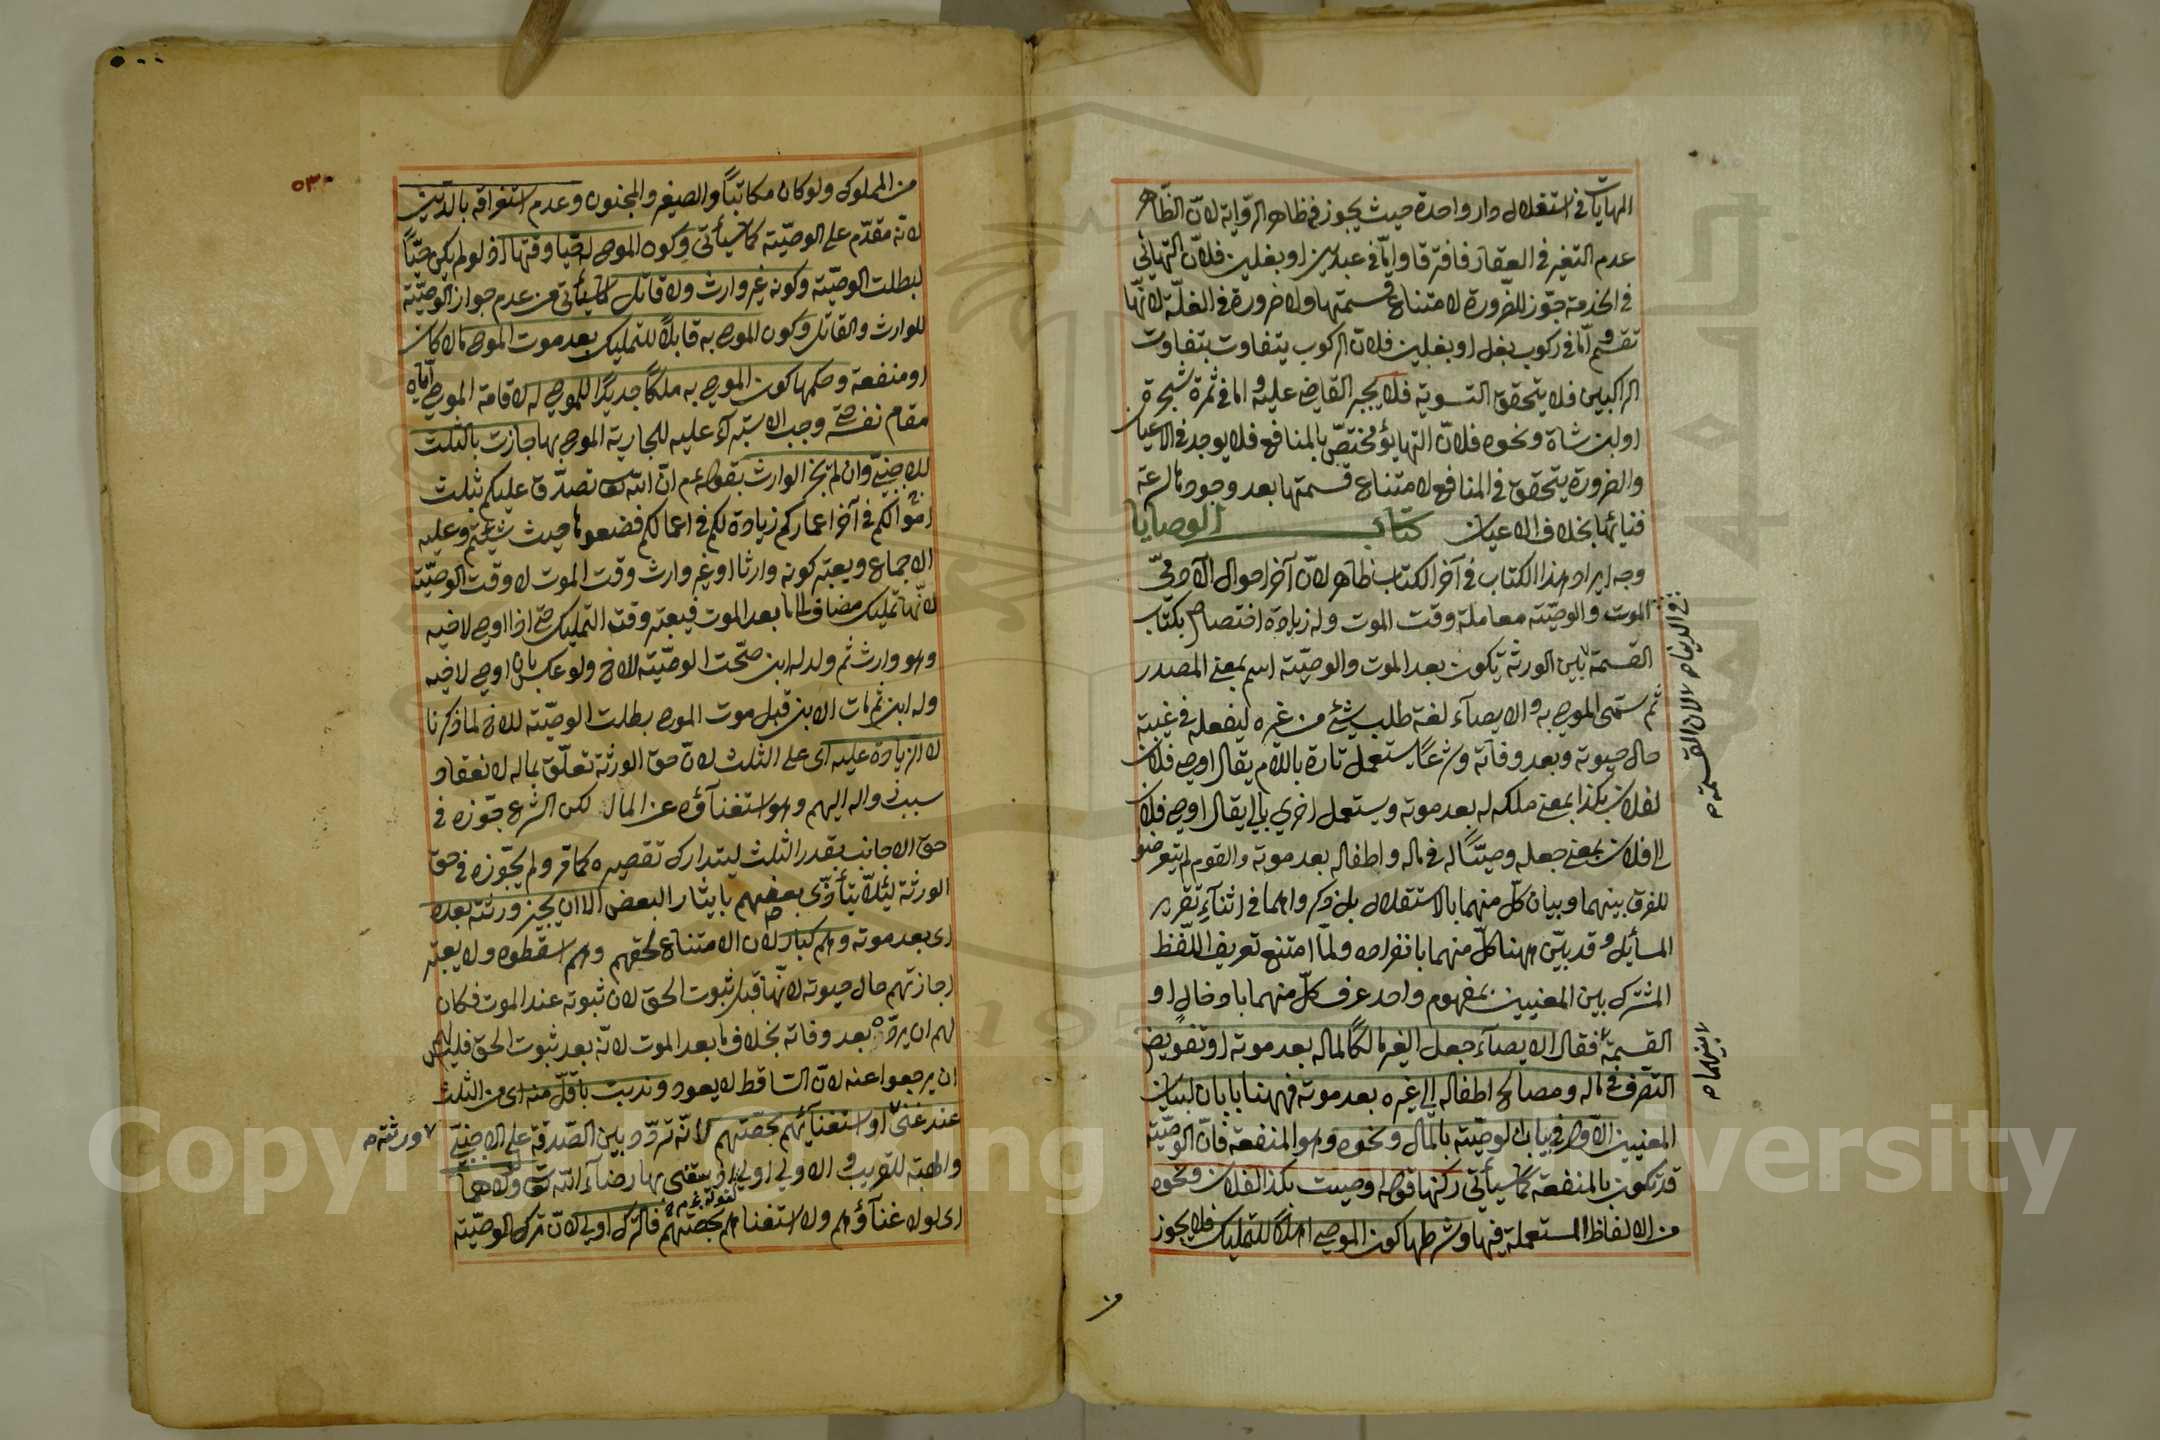 المهايات في استغلال دار واحدة حيث يجوز في ظاهر الرواية لانّ الظاهر
عدم التغير في العقار فافترقا وامّا في عبدين او بغلين فلانّ التهايئ
في الخدمة جوّز للضرورة لامتناع قسمتها ولا ضرورة في الغلّة لانّها
تقسم وامّا في ركوب بغل او بغلين فلان الركوب يتفاوت بتفاوت
الراكبين فلا يتحقق التسوية فلا يجبر القاضي عليه واما في ثمرة شجرة
او لبن شاة ونحوه فلانّ التهايؤ مختصّ بالمنافع فلا يوجد في الاعيان
والضرورة يتحقق في المنافع لامتناع قسمتها بعد وجودها لسرعة
فنائها بخلاف الاعيان كتاب الوصايا
وجه ايراد هذا الكتاب في آخر الكتاب ظاهر لانّ آخر احوال الآدميّ
في الدنيا
الموت والوصيّة معاملة وقت الموت وله زيادة اختصاص بكتاب
لان القسمة
القسمة بين الورثة تكون بعد الموت والوصيّة اسم بمعنى المصدر
ثم سمّى الموصى به والايصاء لغة طلب شئ من غيره ليفعله في غيبته
حال حيوته وبعد وفاته وشرعًا يستعمل تارة باللام يقال اوصى فلان
لفلان بكذا بمعنى ملكه له بعد موته ويستعمل اخرى بالى يقال اوصى فلان
الى فلان بمعنى جعله وصيًّا له في ماله واطفاله بعد موته والقوم لم يتعرضوا
للفرق بينهما وبيان كلّ منهما بالاستقلال بل ذكروهما في اثناء تقرير
المسائل وقد بيّن ههنا كلّ منهما بانفراده ولمّا امتنع تعريف اللّفظ
المشترك بين المعنيين بمفهوم واحد عرف كلّ منهما بادخال او
القسمة بينهما فقال الايصاء جعل الغير مالكًا لماله بعد موته او تفويض
التصرف في ماله ومصالح اطفاله الى غيره بعد موته فههنا بابان لبيان
المعنيين الاوّل في بيان الوصيّة بالمال ونحوه وهو المنفعة فانّ الوصيّة
قد تكون بالمنفعة كما سيأتي ركنها قوله اوصيت بكذا لفلان ونحوه
من الالفاظ المستعملة فيها وشرطها كون الموصى اهلًا للتمليك فلا يجوز
من
٥٣٠
من المملوك ولو كان مكاتبًا والصغير والمجنون وعدم استغراقه بالدّين
لانه مقدّم على الوصيّة كما سيأتي وكون الموصى له حيًّا وقتها اذ لو لم يكن حيًّا
لبطلت الوصيّة وكونه غير وارث ولا قاتل لما سيأتي من عدم جواز الوصيّة
للوارث والقاتل وكون الموصى به قابلًا للتمليك بعد موت الموصى مالا كان
او منفعة وحكمها كون الموصى به ملكًا جديدًا للموصى له لاقامة الموصى ايّاه
مقام نفسه حتى وجب الاستبراء عليه للجارية الموصى بها جازت بالثلث
للاجنبيّ وان لم يجز الوارث بقوله عم انّ الله تعالى تصدّق عليكم بثلث
اموالكم في آخر اعماركم زيادة لكم في اعمالكم فضعوها حيث شئتم وعليه
الاجماع ويعتبر كونه وارثا او غير وارث وقت الموت لا وقت الوصيّة
لانّها تمليك مضاف الى ما بعد الموت فيعتبر وقت التمليك حتى اذا اوصى لاخيه
وهو وارث ثم ولد له ابن صحّت الوصيّة للاخ ولو عكس بان اوصى لاخيه
وله ابن ثم مات الابن قبل موت الموصى بطلت الوصيّة للاخ لما ذكرنا
لا الزيادة عليه اى على الثلث لانّ حقّ الورثة تعلّق بماله لانعقاد
سبب زواله اليهم وهو استغناؤه عن المال لكن الشرع جوّزه في
حقّ الاجانب بقدر الثلث ليتدارك تقصيره كما مرّ ولم يجوّزه في حقّ
الورثة لئلّا يتأذّى بعضهم بايثار البعض الا ان يجيز ورثته بعده
اى بعد موته وهم كبار لان الامتناع لحقهم وهم اسقطوه ولا يعتبر
اجازتهم حال حيوته لانّها قبل ثبوت الحق لان ثبوته عند الموت فكان
لهم ان يردّوه بعد وفاته بخلاف ما بعد الموت لانّه بعد ثبوت الحق فليس لهم
ان يرجعوا عنه لانّ الساقط لا يعود وندبت باقلّ منه اى من الثلث
عند غنى ورثته او استغنائهم بحصّتهم لانّه تردّد بين الصّدقة على الاجنبيّ
والهبة للقريب والاولى اولى اذ يبتغى بها رضاء الله تعالى كتركها بلا هما
اى لولا غناؤهم ولا استغناهم بحصّتهم فالترك اولى لانّ ترك الوصيّة